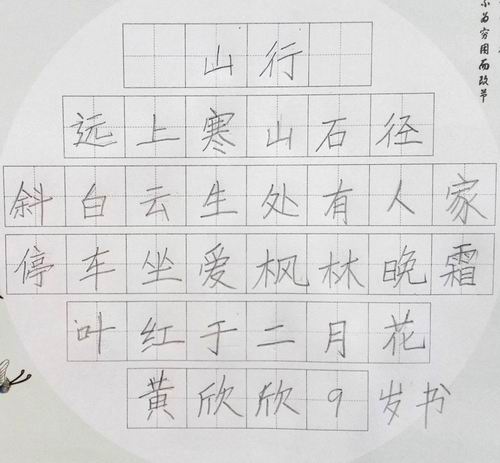 山行
远上寒山石径
斜白云生处有人家
停车坐爱枫林晚霜
叶红于二月花
黄欣欣9岁书
不为穷困而改节